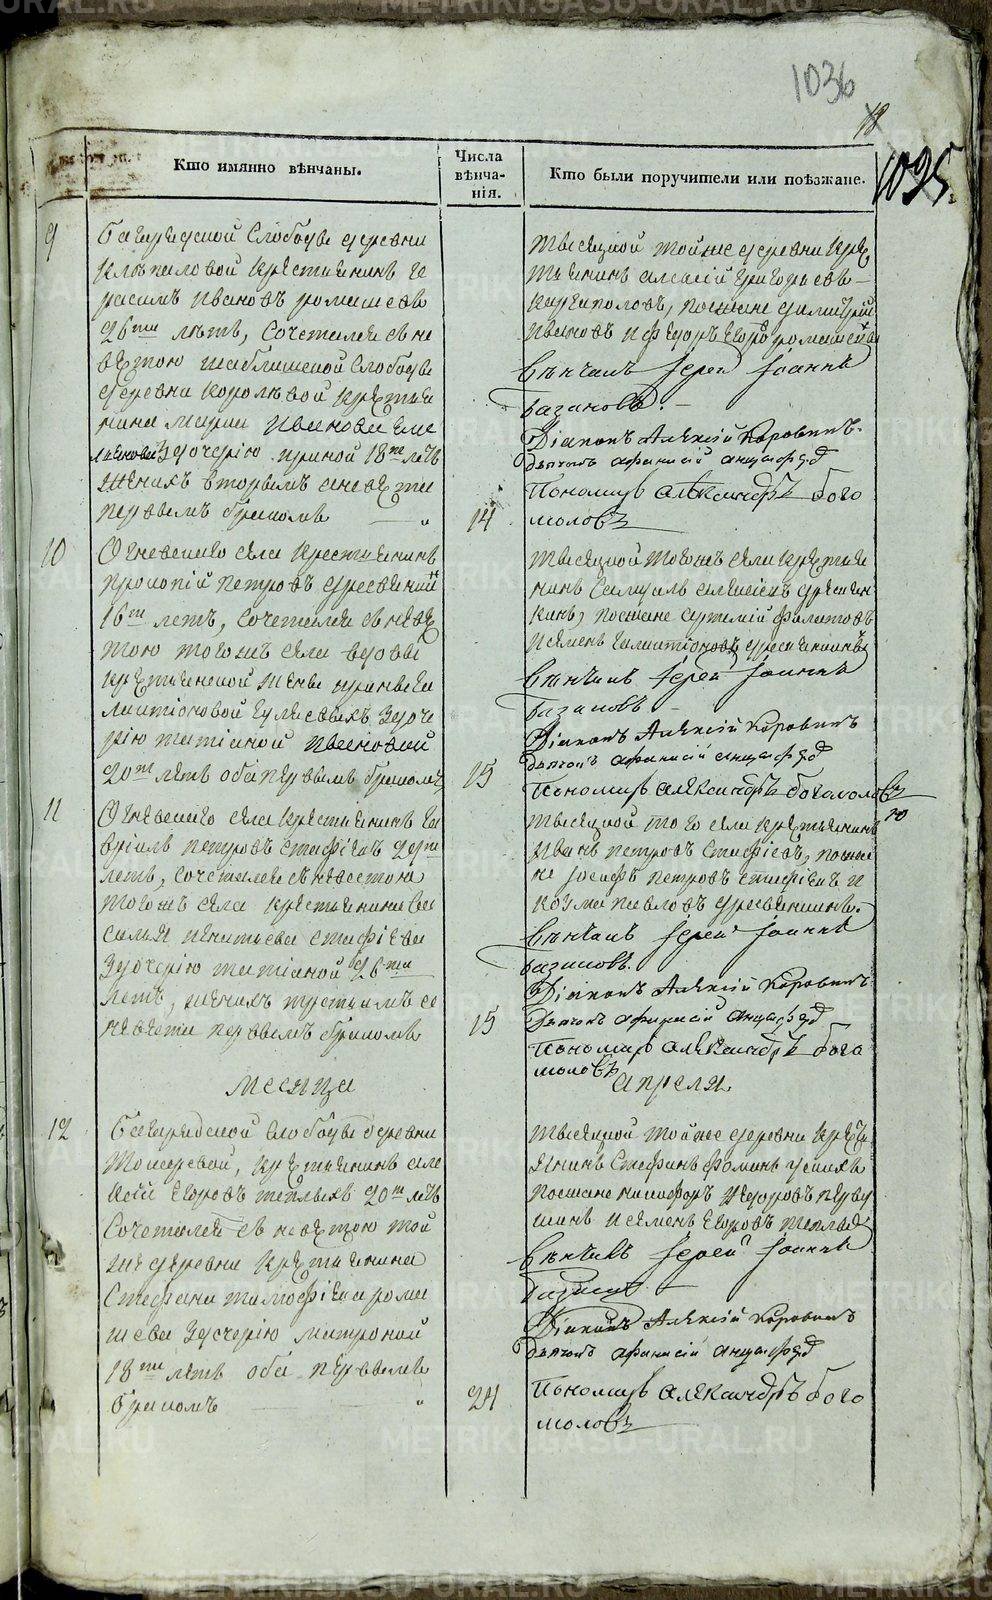 1036
18
1035
Кто имянно вѣнчаны.
Числа вѣнча-нія.
Кто были поручители или поѣзжане.
9
Багарядской Слободы деревни
Клѣпаловой крестьянинъ Ге
расимъ Ивановъ ромашевъ
26ти лѣтъ, Сочетался съ не
вѣстою Слободы
деревни Королевой крестья
нина Ивановы
дочерію ириной 18ти лѣтъ
женихъ вторымъ а невѣста
первымъ бракомъ
14
тысяцкой той же деревни крес
тьянинъ алексѣй григорьевъ
поезжане димитрий
Ивановъ и Федоръ Егоровъ ромашевы
вѣнчалъ Іерей Іоаннъ
базановъ.
Діаконъ Алексій Коровинъ
дьячокъ афанасій
Пономарь Александръ бого
моловъ
10
Огневского села крестьянинъ
прокопій петровъ дресвянкинъ
16ти летъ, сочетался съ невѣс
тою тогожъ села вдовы
крестьянской жены
доче
рію татианой Ивановой
20ти летъ оба первымъ бракомъ
15
тысяцкой тогожъ села крестья
нинъ Самуилъ алексѣевъ дресвян
кинъ, поезжане артемій филатовъ
и семенъ дресвянкинъ
вѣнчалъ Іерей Іоаннъ
базановъ
Діаконъ Алексій Коровинъ
дьячокъ афанасій
Пономарь Александръ богомоловъ
11
Огневского села крестьянинъ га
вріилъ петровъ Стафѣевъ
летъ, сочетался съ невѣстою
тогожъ села крестьянина ва
силья игнатьева стафѣева
дочерію татианой 26ти
летъ, женихъ третьимъ а
невѣста первымъ бракомъ
15
тысяцкой того села крестьянинъ
Иванъ петровъ Стафѣевъ, поезжа
не Іосифъ петровъ стафѣевъ и
козма павловъ дресвянкинъ.
вѣнчалъ Іерей Іоаннъ
базановъ.
Діаконъ Алексій Коровинъ
дьячокъ афанасій
Пономарь Александръ бого
моловъ
месяца апреля
12
Багарядской слободы деревни
крестьянинъ але
ксѣй Егоровъ теплыхъ 20ти летъ
Сочетался съ невѣстою той
же деревни крестьянина
Стефана тимофѣева рома
шева дочерію матроной
18ти летъ оба первымъ
бракомъ
24
тысяцкой той же деревни кресть
янинъ Стефанъ фоминъ
поезжане никифоръ Федоровъ перву
шинъ и семенъ Егоровъ теплыхъ
вѣнчалъ Іерей Іоаннъ
базановъ
Діаконъ Алексій Коровинъ
дьячокъ афанасій
Пономарь Александръ бого
моловъ
METRIKI.GASU-URAL.RU